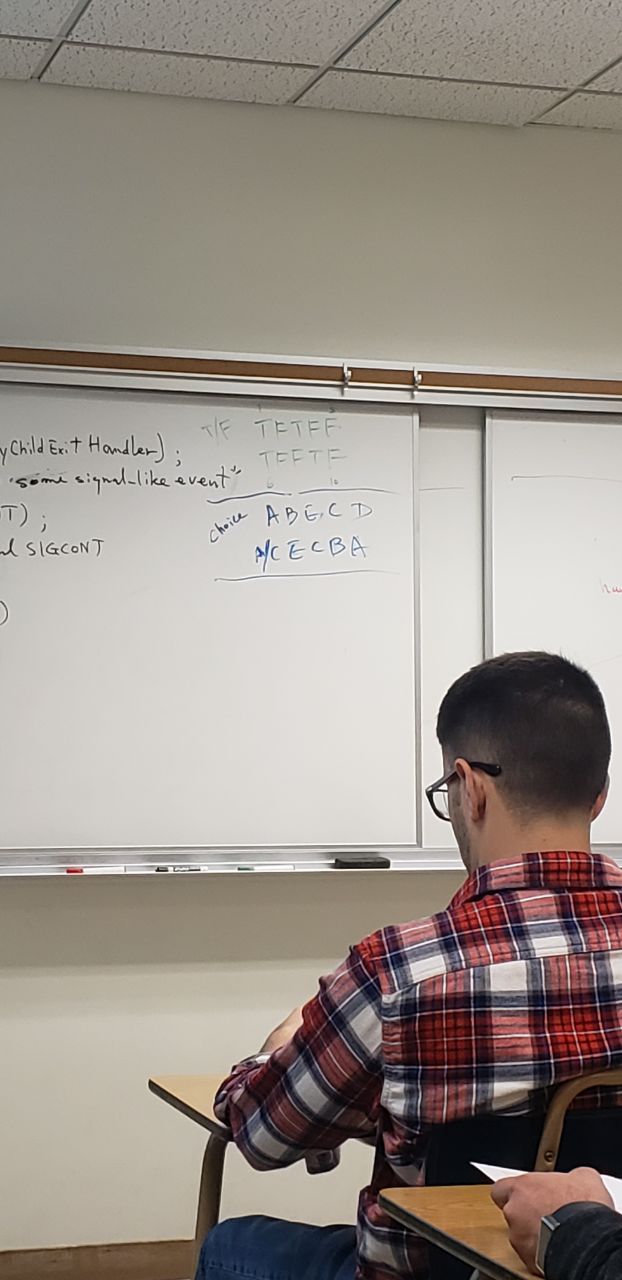 yChildExit Handler) ;
some signal-like event"
T) ;
SIGCONT
)
T/F TFTFF
TFFTF
6 10
choice ABECD
A/CECBA